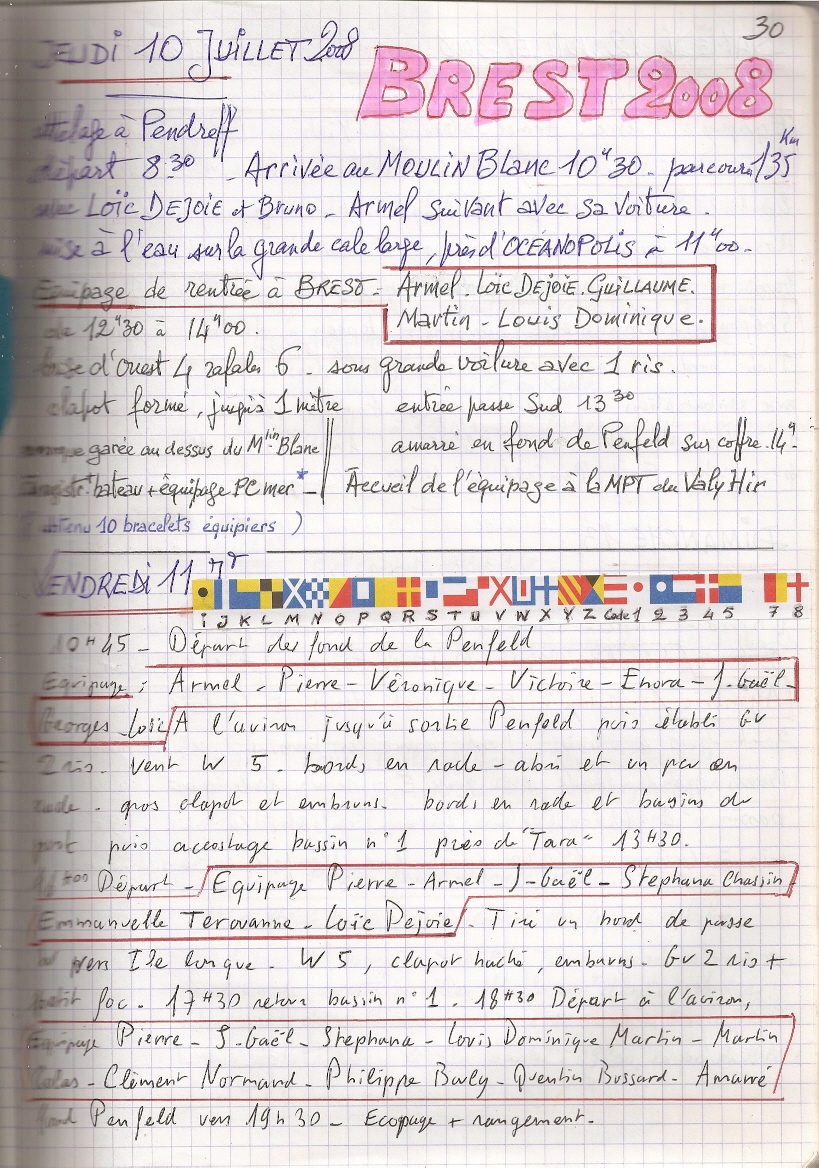 30
JEUDI 10 JUILLET 2008
BREST 2008
attelage à Pendreff
départ 8 30 - Arrivée au MOULIN BLANC 10H30 - parcouru 135 Km
avec LOÏC DEJOIE et Bruno - Armel suivant avec sa voiture.
mise à l'eau sur la grande cale large, près d'OCÉANOPOLIS à 11H00.
Equipage de rentrée à BREST - Armel. Loïc DEJOIE. GUILLAUME.
de 12H30 à 14H00. Martin - Louis Dominique.
brise d'Ouest 4 rafales 6 - sous grande voilure avec 1 ris.
clapot formé, jusqu'à 1 mètre entrée passe Sud 13 30
garée au dessus du Mlin Blanc amarré en fond de Penfeld sur coffre. 14H.
bateau + équipage PC mer * - Accueil de l'équipage à la MPT du Valy Hir
obtenu 10 bracelets équipiers )
VENDREDI 11
i J K L M N O P Q R S T U V W X Y Z Code 1 2 3 4 5 7 8
10H45 - Départ du fond de la Penfeld
Equipage : Armel - Pierre - Véronique - Victoire - Enora - J-Gaël -
Georges - Loïc / A l'aviron jusqu'à sortie Penfeld puis établi GV
2 ris. Vent W 5. bords en rade - abri et un peu en
rade - gros clapot et embruns. bords en rade et bassins du
port puis accostage bassin n°1 près de "Tara" 13H30.
Départ - / Equipage Pierre - Armel - J-Gaël - Stephana Chassin
Emmanuelle Terovanne - Loïc Dejoie / . Tiré un bord de passe
W vers Ile longue. W 5, clapot haché, embruns. GV 2 ris +
petit foc. 17H30 retour bassin n°1. 18H30 Départ à l'aviron,
Equipage Pierre - J-Gaël - Stephana - Louis Dominique Martin - Martin
- Clément Normand - Philippe - Quentin Bussard - Amarré
fond Penfeld vers 19h30 - Ecopage + rangement.